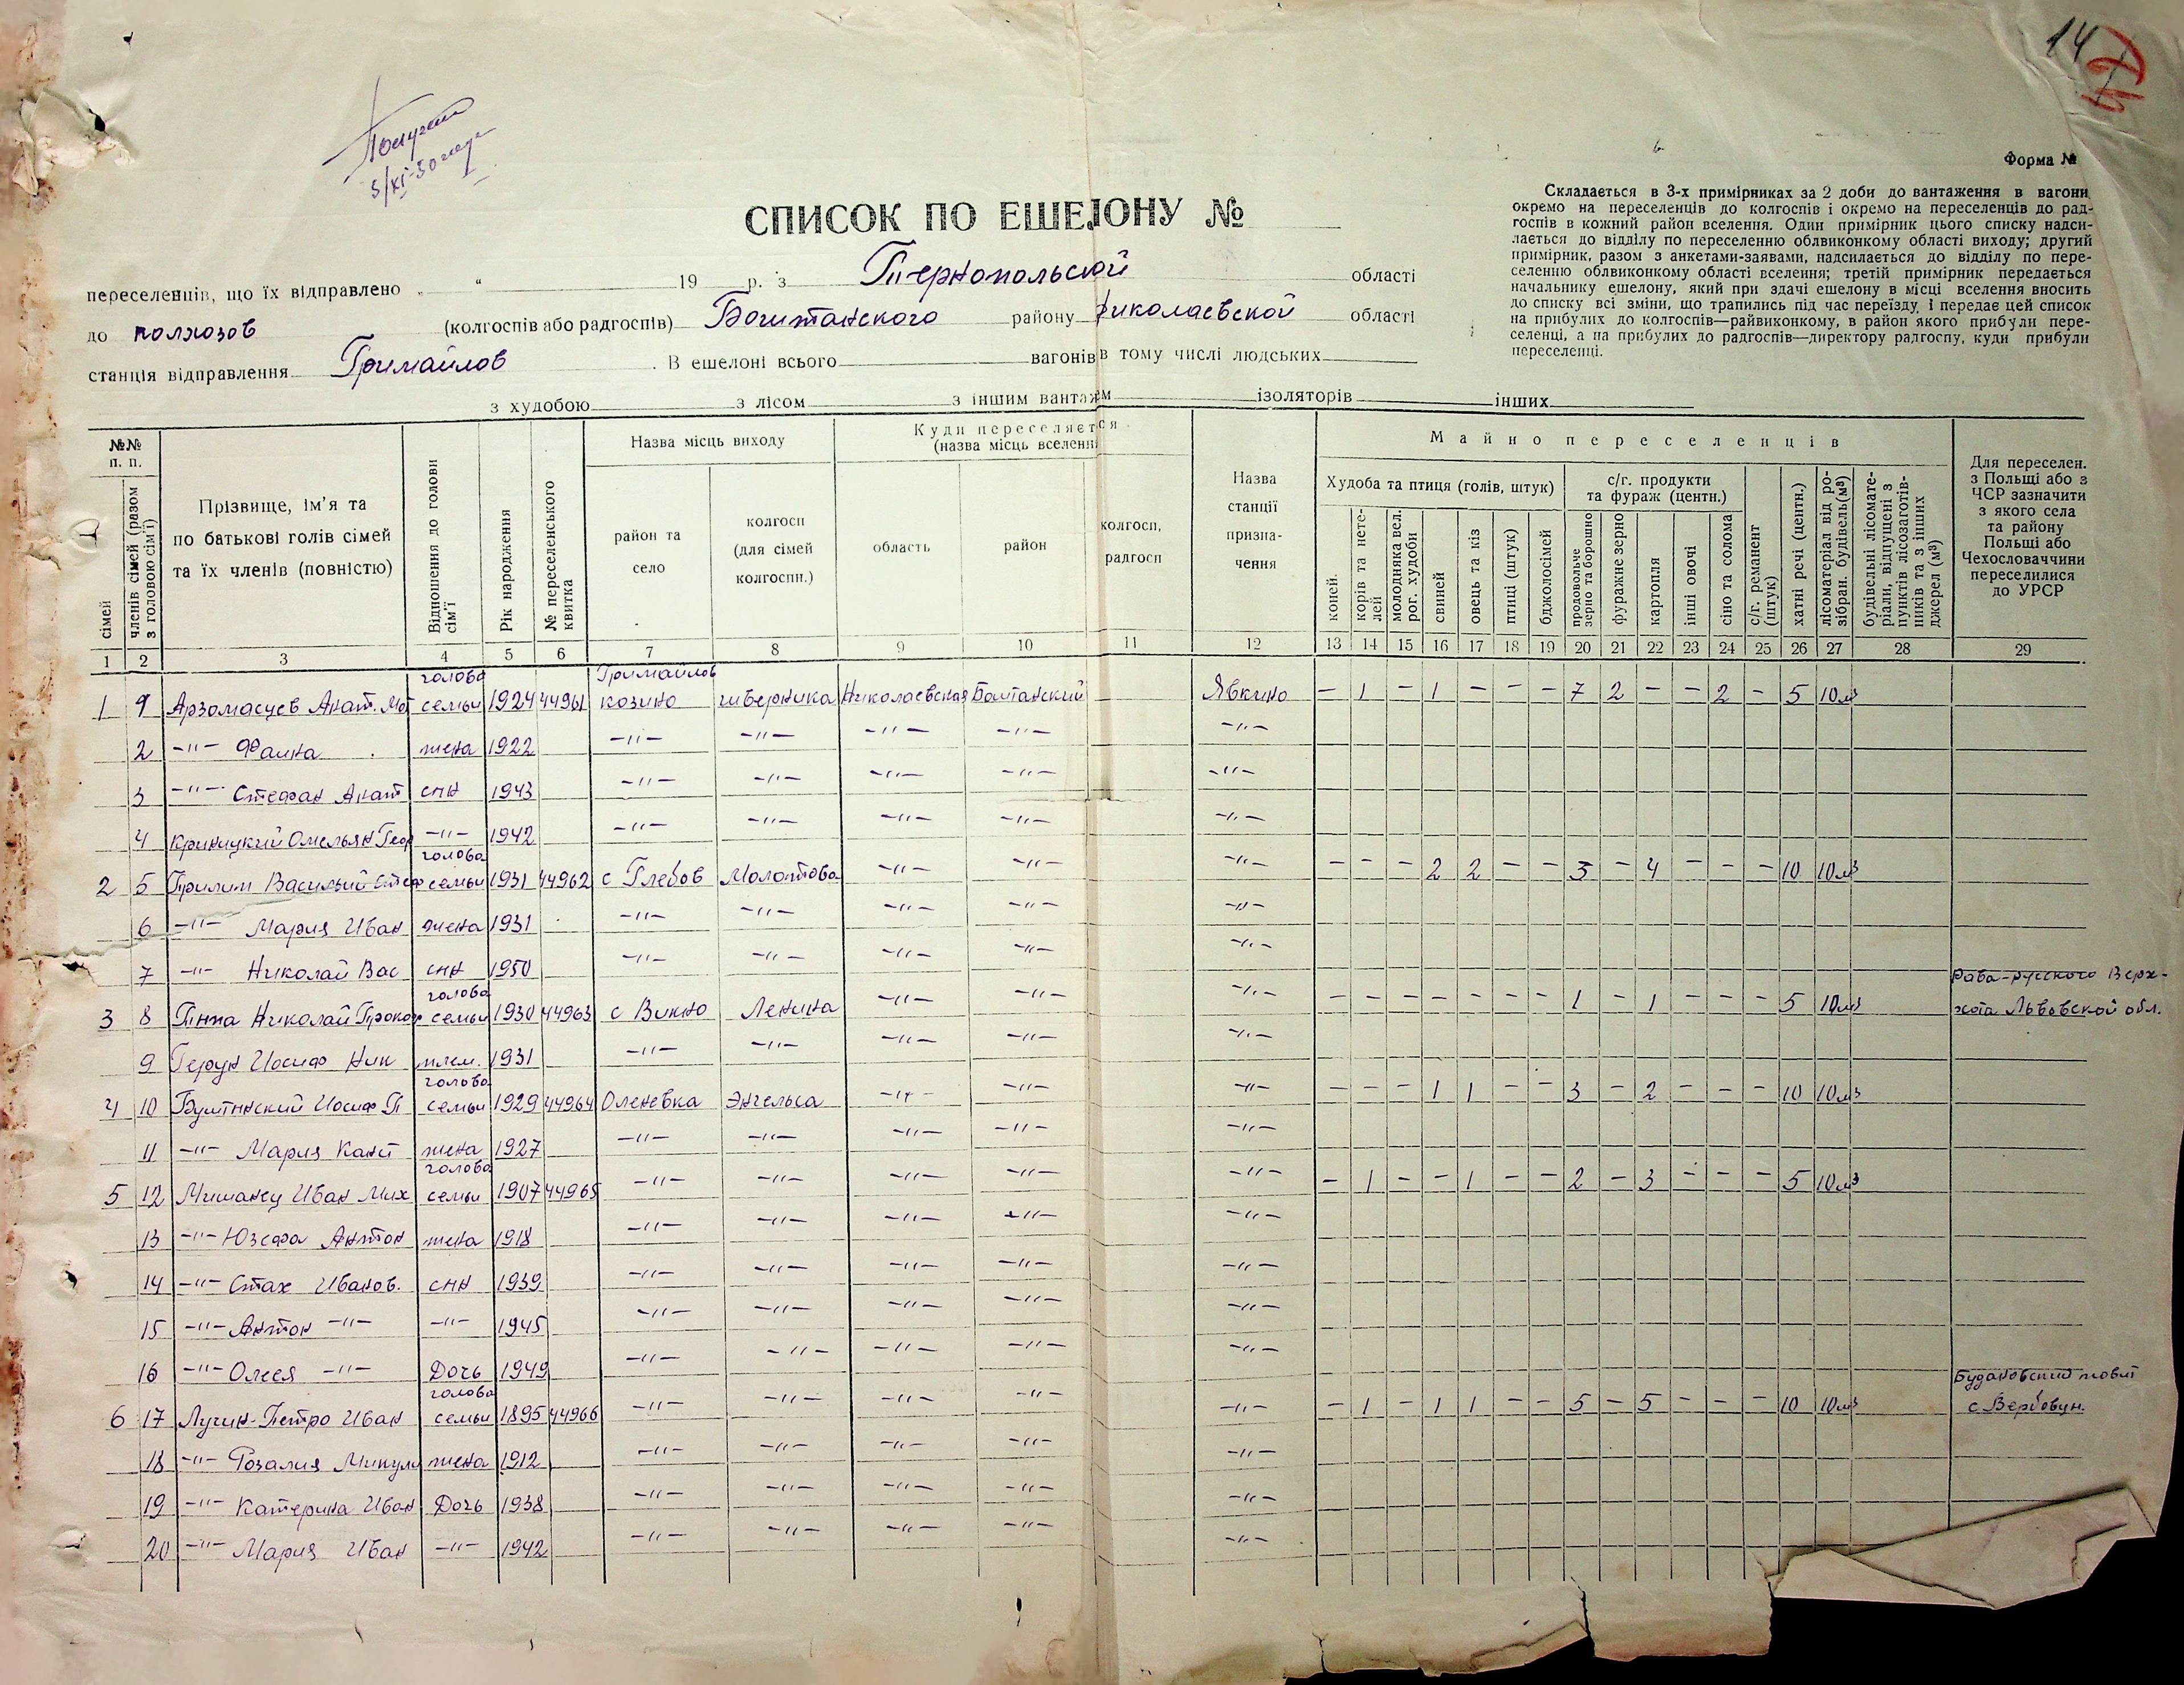 14
Получен
3/XI-50 года
Форма №
Складається в 3-х примірниках за 2 доби до вантаження в вагони
окремо на переселенців до колгоспів і окремо на переселенців до рад-
госпів в кожний район вселення. Один примірник цього списку надси-
лається до відділу по переселенню облвиконкому області виходу; другий
примірник, разом з анкетами-заявами, надсилається до відділу по пере-
селенню облвиконкому області вселення; третій примірник передається
начальнику ешелону, який при здачі ешелону в місці вселення вносить
до списку всі зміни, що трапились під час переїзду і передає цей список
на прибулих до колгоспів—райвиконкому, в район якого прибули пере-
селенці, а на прибулих до радгоспів—директору радгоспу, куди прибули
переселенці.
СПИСОК ПО ЕШЕЛОНУ №
переселенців, що їх відправлено „ “ 19 р. з Тернопольской області
до колхозов (колгоспів або радгоспів) Баштанского району Николаевской області
станція відправлення Гримайлов . В ешелоні всього вагонів в тому числі людських
з худобою з лісом з іншим вантажем ізоляторів інших
№№ п. п.
сімей
членів сімей (разом з головою сім'ї)
Прізвище, ім'я та по батькові голів сімей та їх членів (повністю)
Відношення до голови сім'ї
Рік народження
№ переселенського квитка
Назва місць виходу
район та село
колгосп (для сімей колгоспн.)
Куди переселяється (назва місць вселення
область
район
колгосп, радгосп
Назва станції призна-чення
Майно переселенців
Худоба та птиця (голів, штук)
коней.
корів та нете-лей
молодняка вел. рог. худоби
свиней
овець та кіз
птиці (штук)
бджолосімей
с/г. продукти та фураж (центн.)
продовольче зерно та борошно
фуражне зерно
картопля
інші овочі
сіно та солома
с/г. реманент (штук)
хатні речі (центн.)
лісоматеріал від ро-зібран. будівель (м³)
будівельні лісомате-ріали, відпущені з пунктів лісозаготів-ників та з інших джерел (м³)
Для переселен. з Польщі або з ЧСР зазначити з якого села та району Польщі або Чехословаччини переселилися до УРСР
1 2 3 4 5 6 7 8 9 10 11 12 13 14 15 16 17 18 19 20 21 22 23 24 25 26 27 28 29
голова Гримайлов
1 1 Арзомасцев Анат. семьи 1924 44961 козино Николаевская Баштанский Явкино – 1 – 1 – – – 7 2 – – 2 – 5 10м
2 –"– жена 1922 –"– –"– –"– –"– –"–
3 –"– Стефан Анат сын 1943 –"– –"– –"– –"– –"–
4 Криницкий Омельян Геор –"– 1942 –"– –"– –"– –"– –"–
голова
2 5 Василий Стеф семьи 1931 44962 с Глебов Молотова –"– –"– –"– – – – 2 2 – – 3 – 4 – – – 10 10м³
6 –"– Мария Иван жена 1931 –"– –"– –"– –"– –"–
7 –"– Николай Вас сын 1950 –"– –"– –"– –"– –"–
голова Рава-русского
3 8 Николай Прокоп семьи 1930 44963 с Викно Ленина –"– –"– –"– – – – – – – – 1 – 1 – – – 5 10м³ Львовской обл.
9 Герун Иосиф Ник плем. 1931 –"– –"– –"– –"– –"–
голова
4 10 Иосиф П семьи 1929 44964 Оленевка Энгельса –"– –"– –"– – – – 1 1 – – 3 – 2 – – – 10 10м³
11 –"– Мария жена 1927 –"– –"– –"– –"– –"–
голова
5 12 Мишанец Иван Мих семьи 1907 44965 –"– –"– –"– –"– –"– – 1 – – 1 – – 2 – 3 – – – 5 10м³
13 –"– Юзефа Антон жена 1918 –"– –"– –"– –"– –"–
14 –"– Стах Иванов. сын 1939 –"– –"– –"– –"– –"–
15 –"– Антон –"– –"– 1945 –"– –"– –"– –"– –"–
16 –"– Олеся –"– Дочь 1949 –"– –"– –"– –"– –"–
голова Будановский
6 17 Лучин Петро Иван семьи 1895 44966 –"– –"– –"– –"– –"– – 1 – 1 1 – – 5 – 5 – – – 10 10м³ с Вербовец.
18 –"– Розалия жена 1912 –"– –"– –"– –"– –"–
19 –"– Катерина Иван Дочь 1938 –"– –"– –"– –"– –"–
20 –"– Мария Иван –"– 1942 –"– –"– –"– –"– –"–